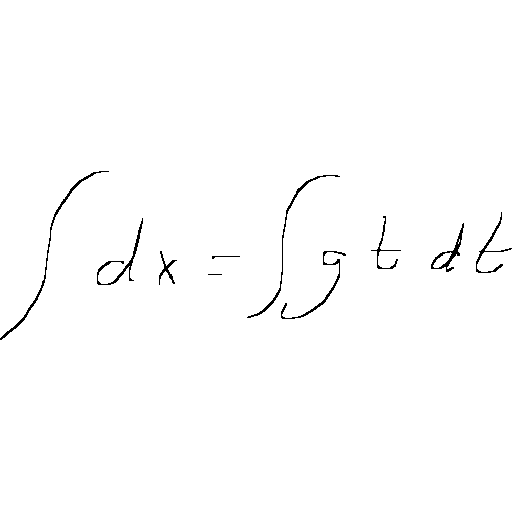 ∫ dx = ∫ g t dt